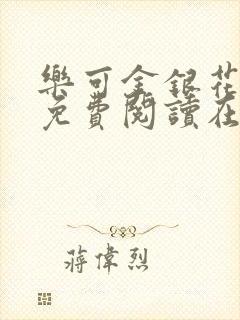 樂可金銀花
免費閱讀在
蔣偉烈